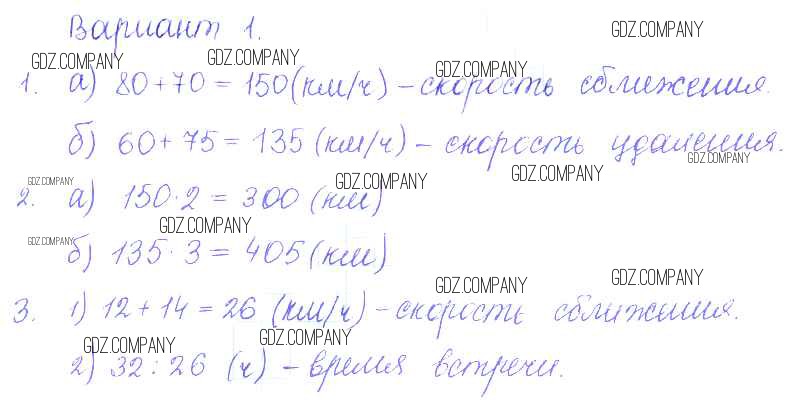 Вариант 1.
GDZ.COMPANY
GDZ.COMPANY GDZ.COMPANY
GDZ.COMPANY
1. а) 80+70=150(км/ч) – скорость сближения.
б) 60+75=135(км/ч) – скорость удаления.
GDZ.COMPANY
GDZ.COMPANY GDZ.COMPANY GDZ.COMPANY
2. а) 150·2=300(км)
GDZ.COMPANY
GDZ.COMPANY
б) 135·3=405(км)
GDZ.COMPANY GDZ.COMPANY
3. 1) 12+14=26 (км/ч) – скорость сближения.
GDZ.COMPANY GDZ.COMPANY
2) 32:26 (ч) – время встречи.